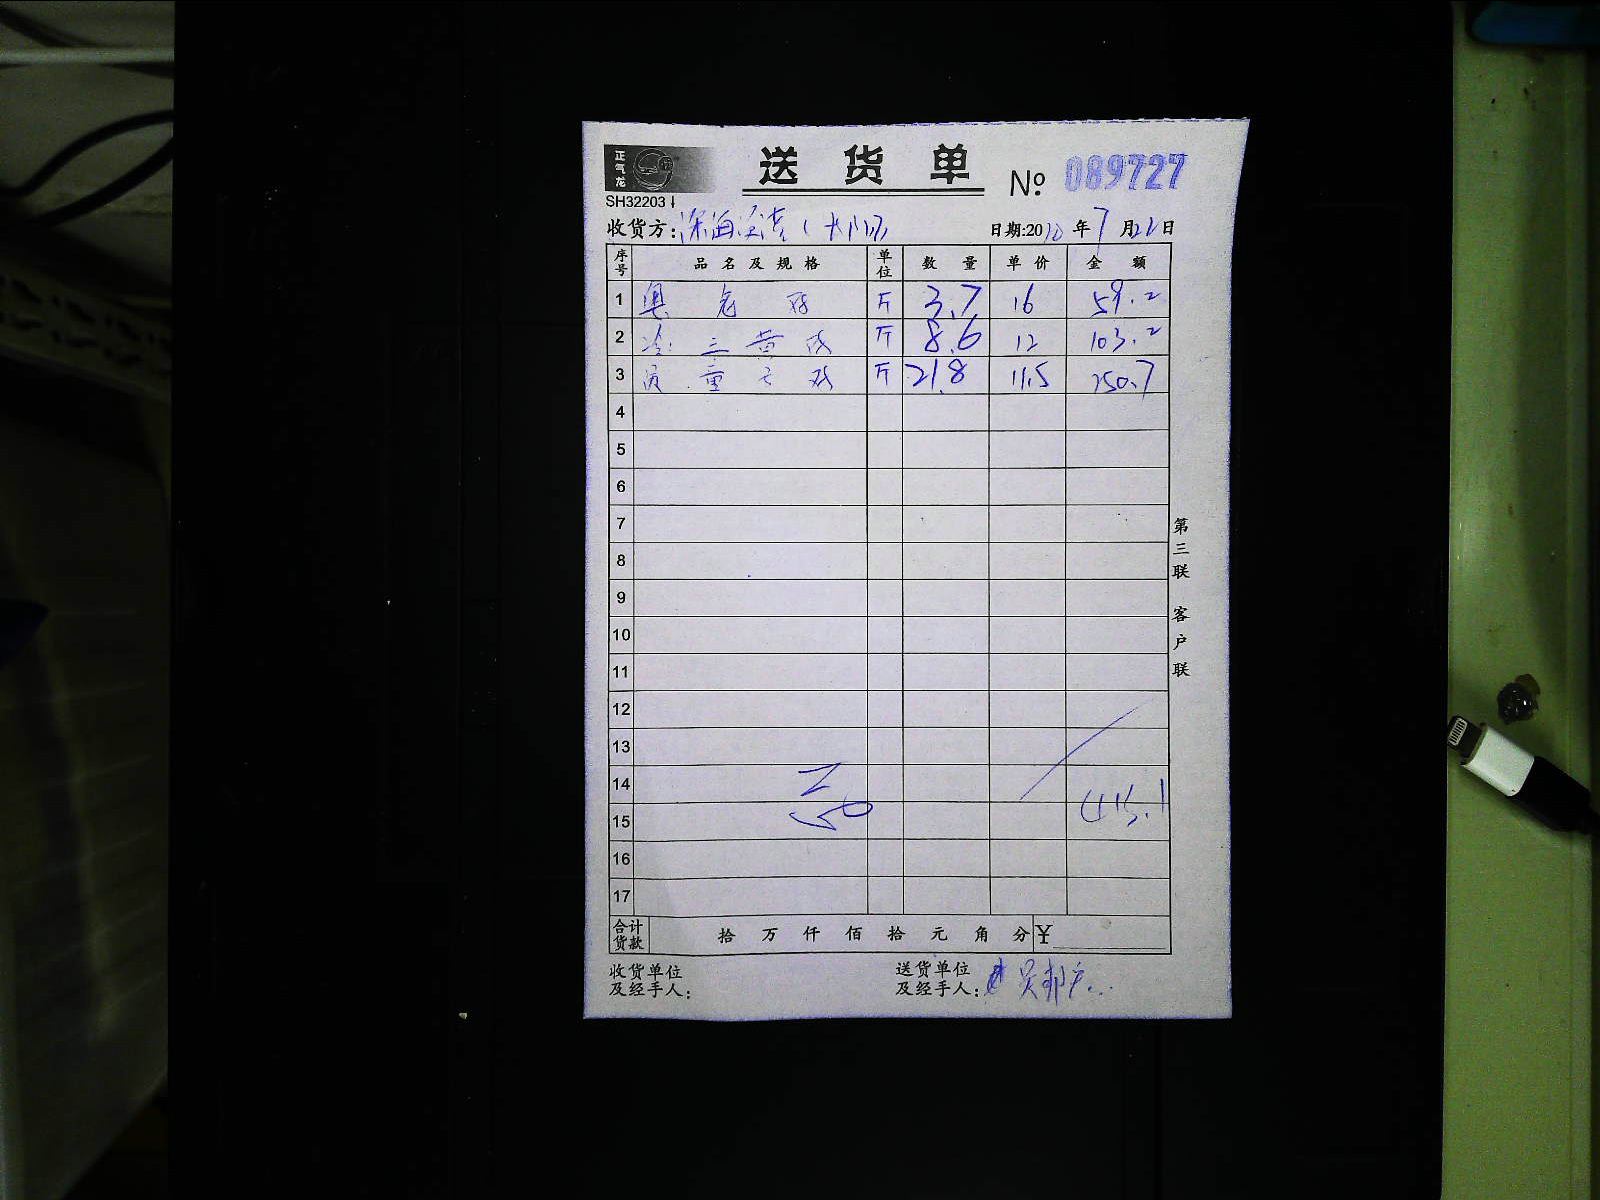 正气龙
送货单 № 089727
SH32203
收货方: 日期:20 年 7 月 日
序号 品名及规格 单位 数量 单价 金额
1 斤 3.7 16 59.2
2 三黄 斤 8.6 12 103.2
3 童子 斤 21.8 11.5 250.7
4
5
6
7
8
9
10
11
12
13
14
15 415.1
16
17
第三联 客户联
合计货款 拾 万 仟 佰 拾 元 角 分 ¥
收货单位及经手人: 送货单位及经手人: